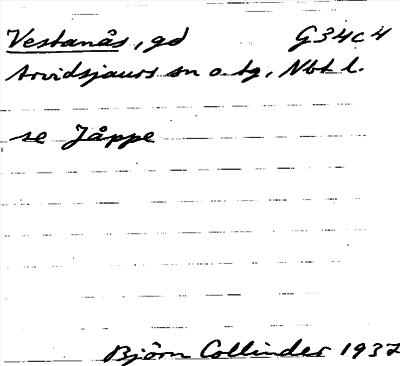 Vestanås, gd G34c4
Arvidsjaurs sn o. tg, Nbt l.
se Jåppe
Björn Collinder 1937